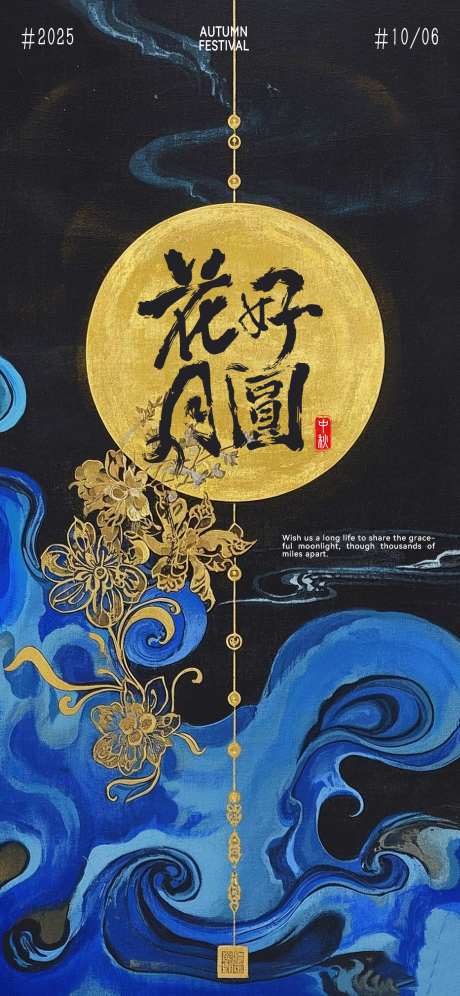 #2025
AUTUMN
FESTIVAL
#10/06
花好
月圓
中秋
Wish us a long life to share the grace-
ful moonlight, though thousands of
miles apart.